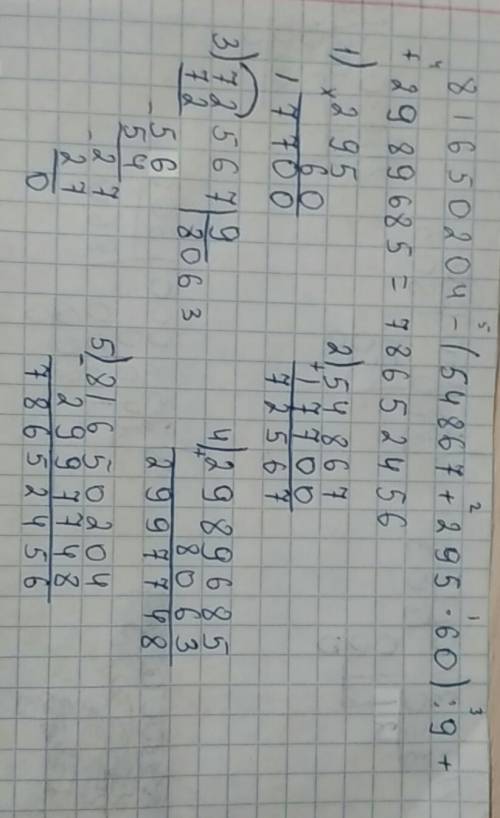 81650204 - (54867 + 295 · 60) : 9 +
+ 2989685 = 78652456
1) × 295
60
17700
2) + 54867
17700
72567
3) 72567 | 9
72 | 8063
- 56
54
- 27
27
0
4) + 2989685
8063
2997748
5) - 81650204
2997748
78652456